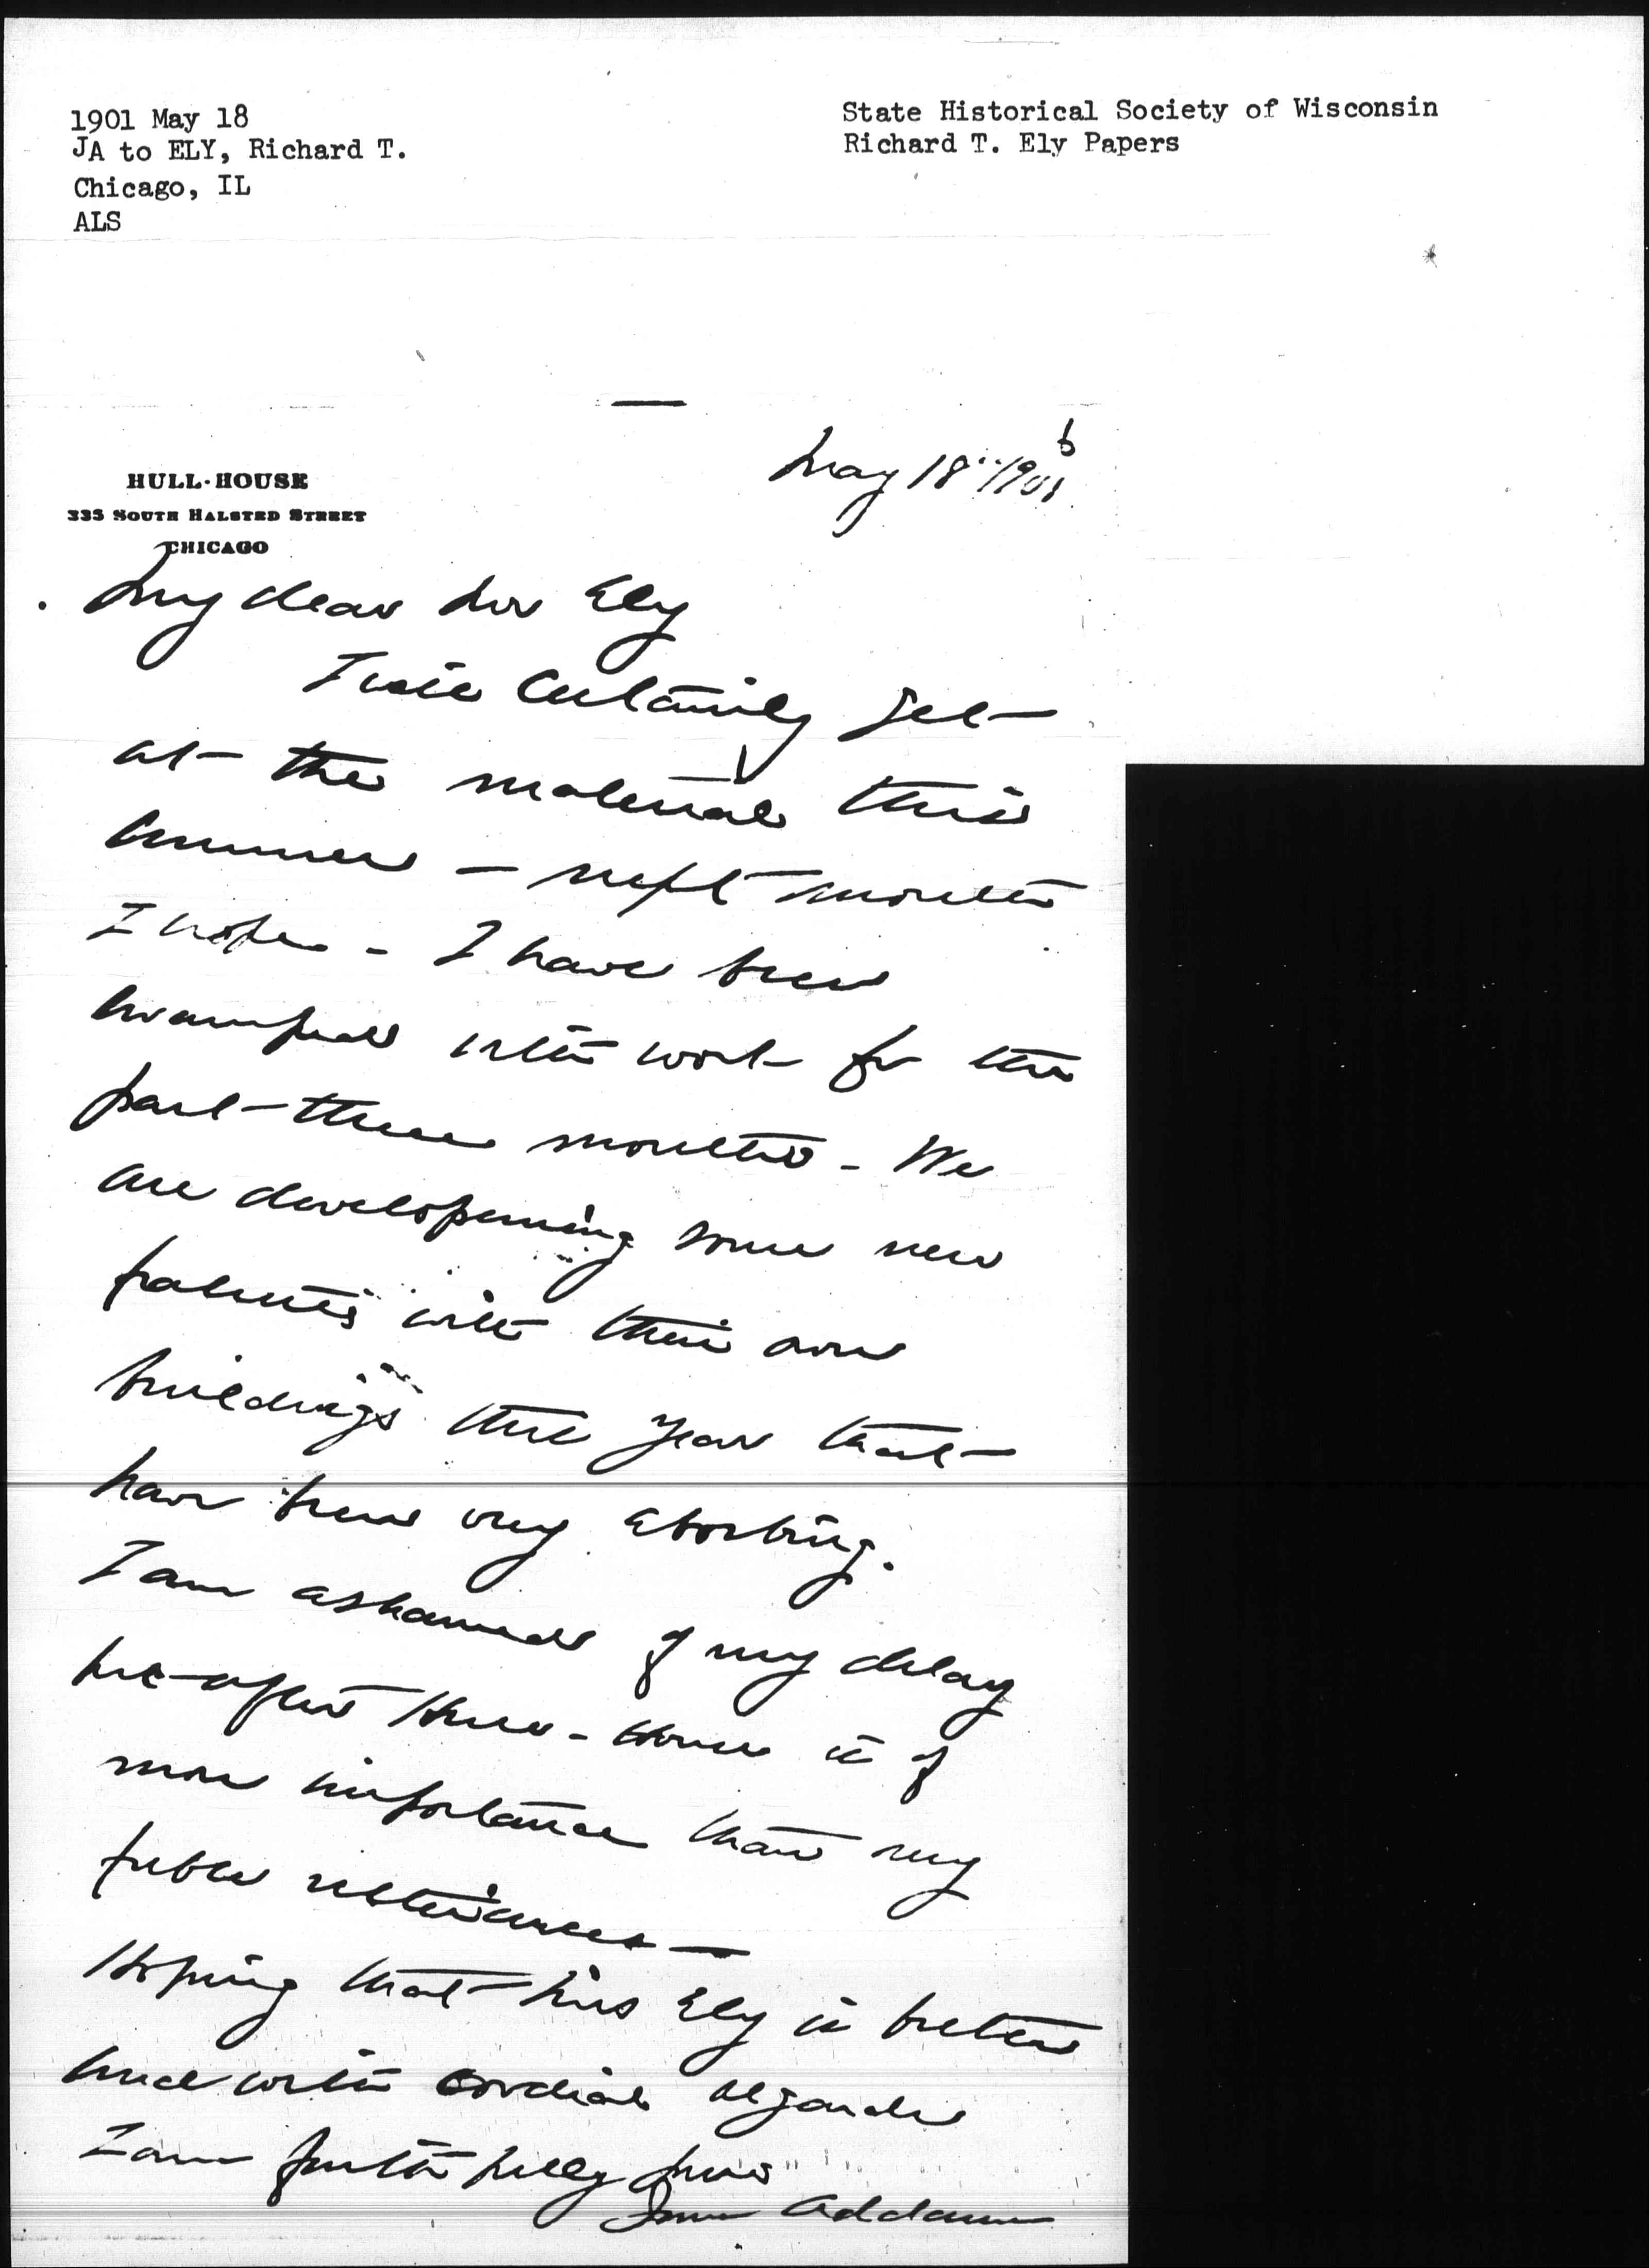 1901 May 18
JA to ELY, Richard T.
Chicago, IL
ALS
State Historical Society of Wisconsin
Richard T. Ely Papers
May 18" 1901
HULL-HOUSE
335 SOUTH HALSTED STREET
CHICAGO
My dear Mr Ely
I will certainly get
at the material this
summer – next month
I hope – I have been
swamped with work for the
past three months – We
are developing some new
with their own
buildings this year that
have been very absorbing.
I am ashamed of my delay
but after Hull-House is of
more importance than my
public utterances —
Hoping that Mrs Ely is better
and with cordial regards
I am faithfully yours
Jane Addams